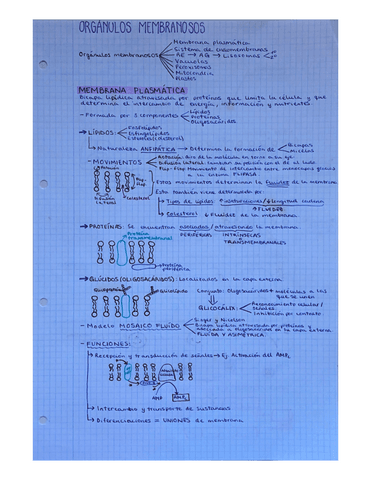 ORGÁNULOS MEMBRANOSOS
Membrana plasmática
Sistema de endomembranas
Orgánulos membranosos
RE → AG → Lisosomas
Vacuolas
Peroxisomas
Mitocondria
Plastos
MEMBRANA PLASMÁTICA
Bicapa lipídica atravesada por proteínas que limita la célula y que
determina el intercambio de energía, información y nutrientes
- Formada por 3 componentes
Lípidos
Proteínas
Oligosacáridos
→ LÍPIDOS:
Fosfolípidos
Esfingolípidos
Esteroles (colesterol)
→ Naturaleza ANFIPÁTICA → Determina la formación de
Bicapas
Micelas
- MOVIMIENTOS
Rotación: Giro de la molécula en torno a su eje
Difusión lateral: cambian su posición con la de al lado
Flip-Flop: Movimiento de intercambio entre
FLIPASA
Rotación
Flip
Flop
Difusión lateral
Colesterol
Estos movimientos determinan la fluidez de la membrana
Esta también viene determinada por:
Tipos de lípidos
FLUIDEZ
Colesterol: Fluidez de la membrana
→ PROTEÍNAS: Se encuentran asociadas/atravesando la membrana
PERIFÉRICAS INTRÍNSECAS
TRANSMEMBRANALES
Proteína transmembranal
Proteína periférica
→ GLÚCIDOS (OLIGOSACÁRIDOS): Localizados en la capa externa
Glucoproteína
Glucolípido
Conjunto: Oligosacáridos + moléculas a las
que se unen
GLICOCÁLIX
Reconocimiento celular/
señales
Inhibición por contacto
- Modelo MOSAICO FLUÍDO
Singer y Nicolson
Bicapa lipídica atravesada por proteínas y
asociada a oligosacáridos en la capa externa
FLUIDA Y ASIMÉTRICA
- FUNCIONES:
→ Recepción y transducción de señales → Ej. Activación del AMPc
AMP
AMPc
→ Intercambio y transporte de sustancias
→ Diferenciaciones = UNIONES de membrana